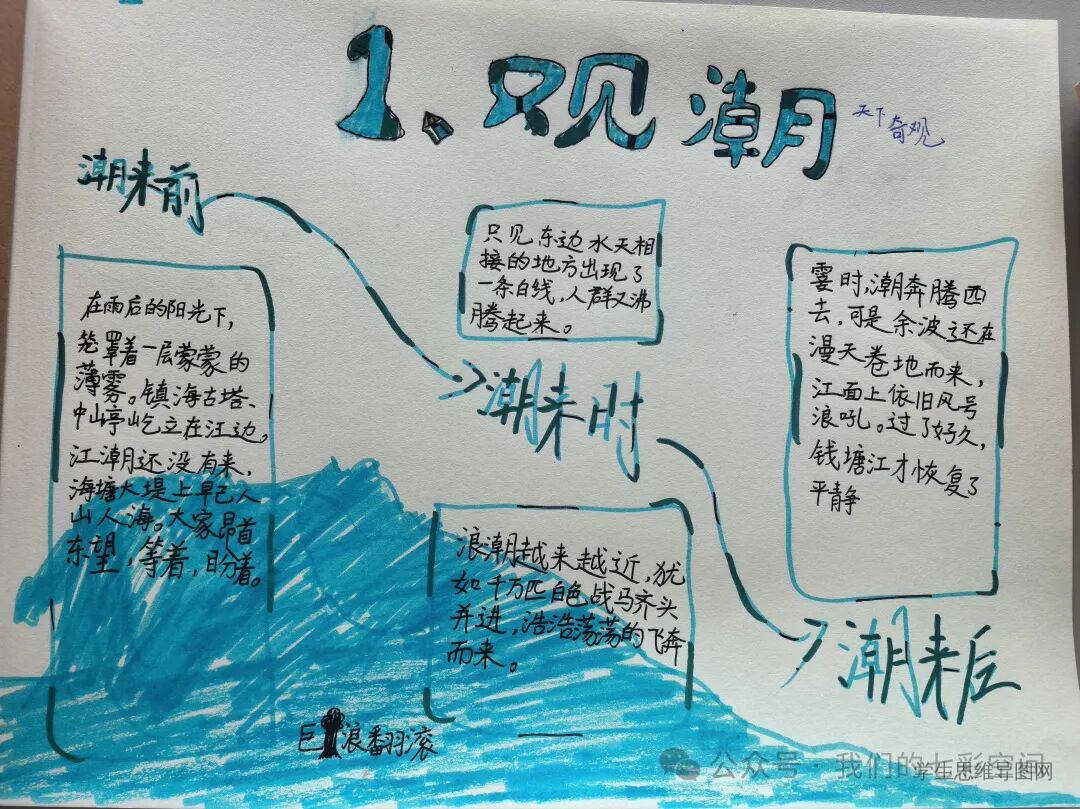 1、只见潮
天下
奇观
潮来前
在雨后的阳光下，
笼罩着一层蒙蒙的
薄雾。镇海古塔、
中山亭屹立在江边。
江潮还没有来，
海塘大堤上早已人
山人海。大家昂首
东望，等着，盼着。
只见东边水天相
接的地方出现了
一条白线，人群又沸
腾起来。
潮来时
浪潮越来越近，犹
如千万匹白色战马齐头
并进，浩浩荡荡的飞奔
而来。
霎时，潮奔腾西
去，可是余波还在
漫天卷地而来，
江面上依旧风号
浪吼。过了好久，
钱塘江才恢复了
平静
潮来后
巨浪翻滚
公众号·我们的七彩空间
学生思维导图网